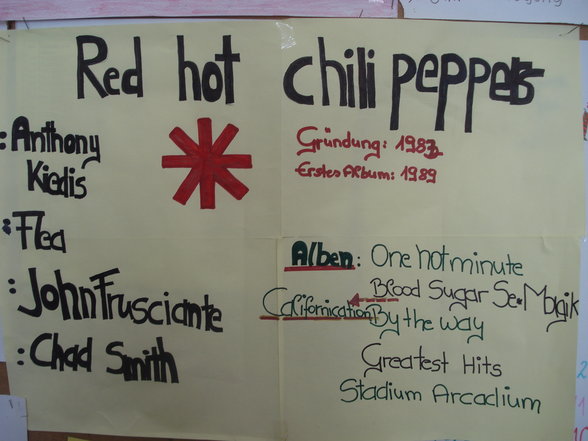 Red hot chili peppers
: Anthony
Kiedis
: Flea
: John Frusciante
: Chad Smith
Gründung: 1983
Erstes Album: 1989
Alben: One hot minute
Blood Sugar Sex Magik
Californication By the way
Greatest Hits
Stadium Arcadium